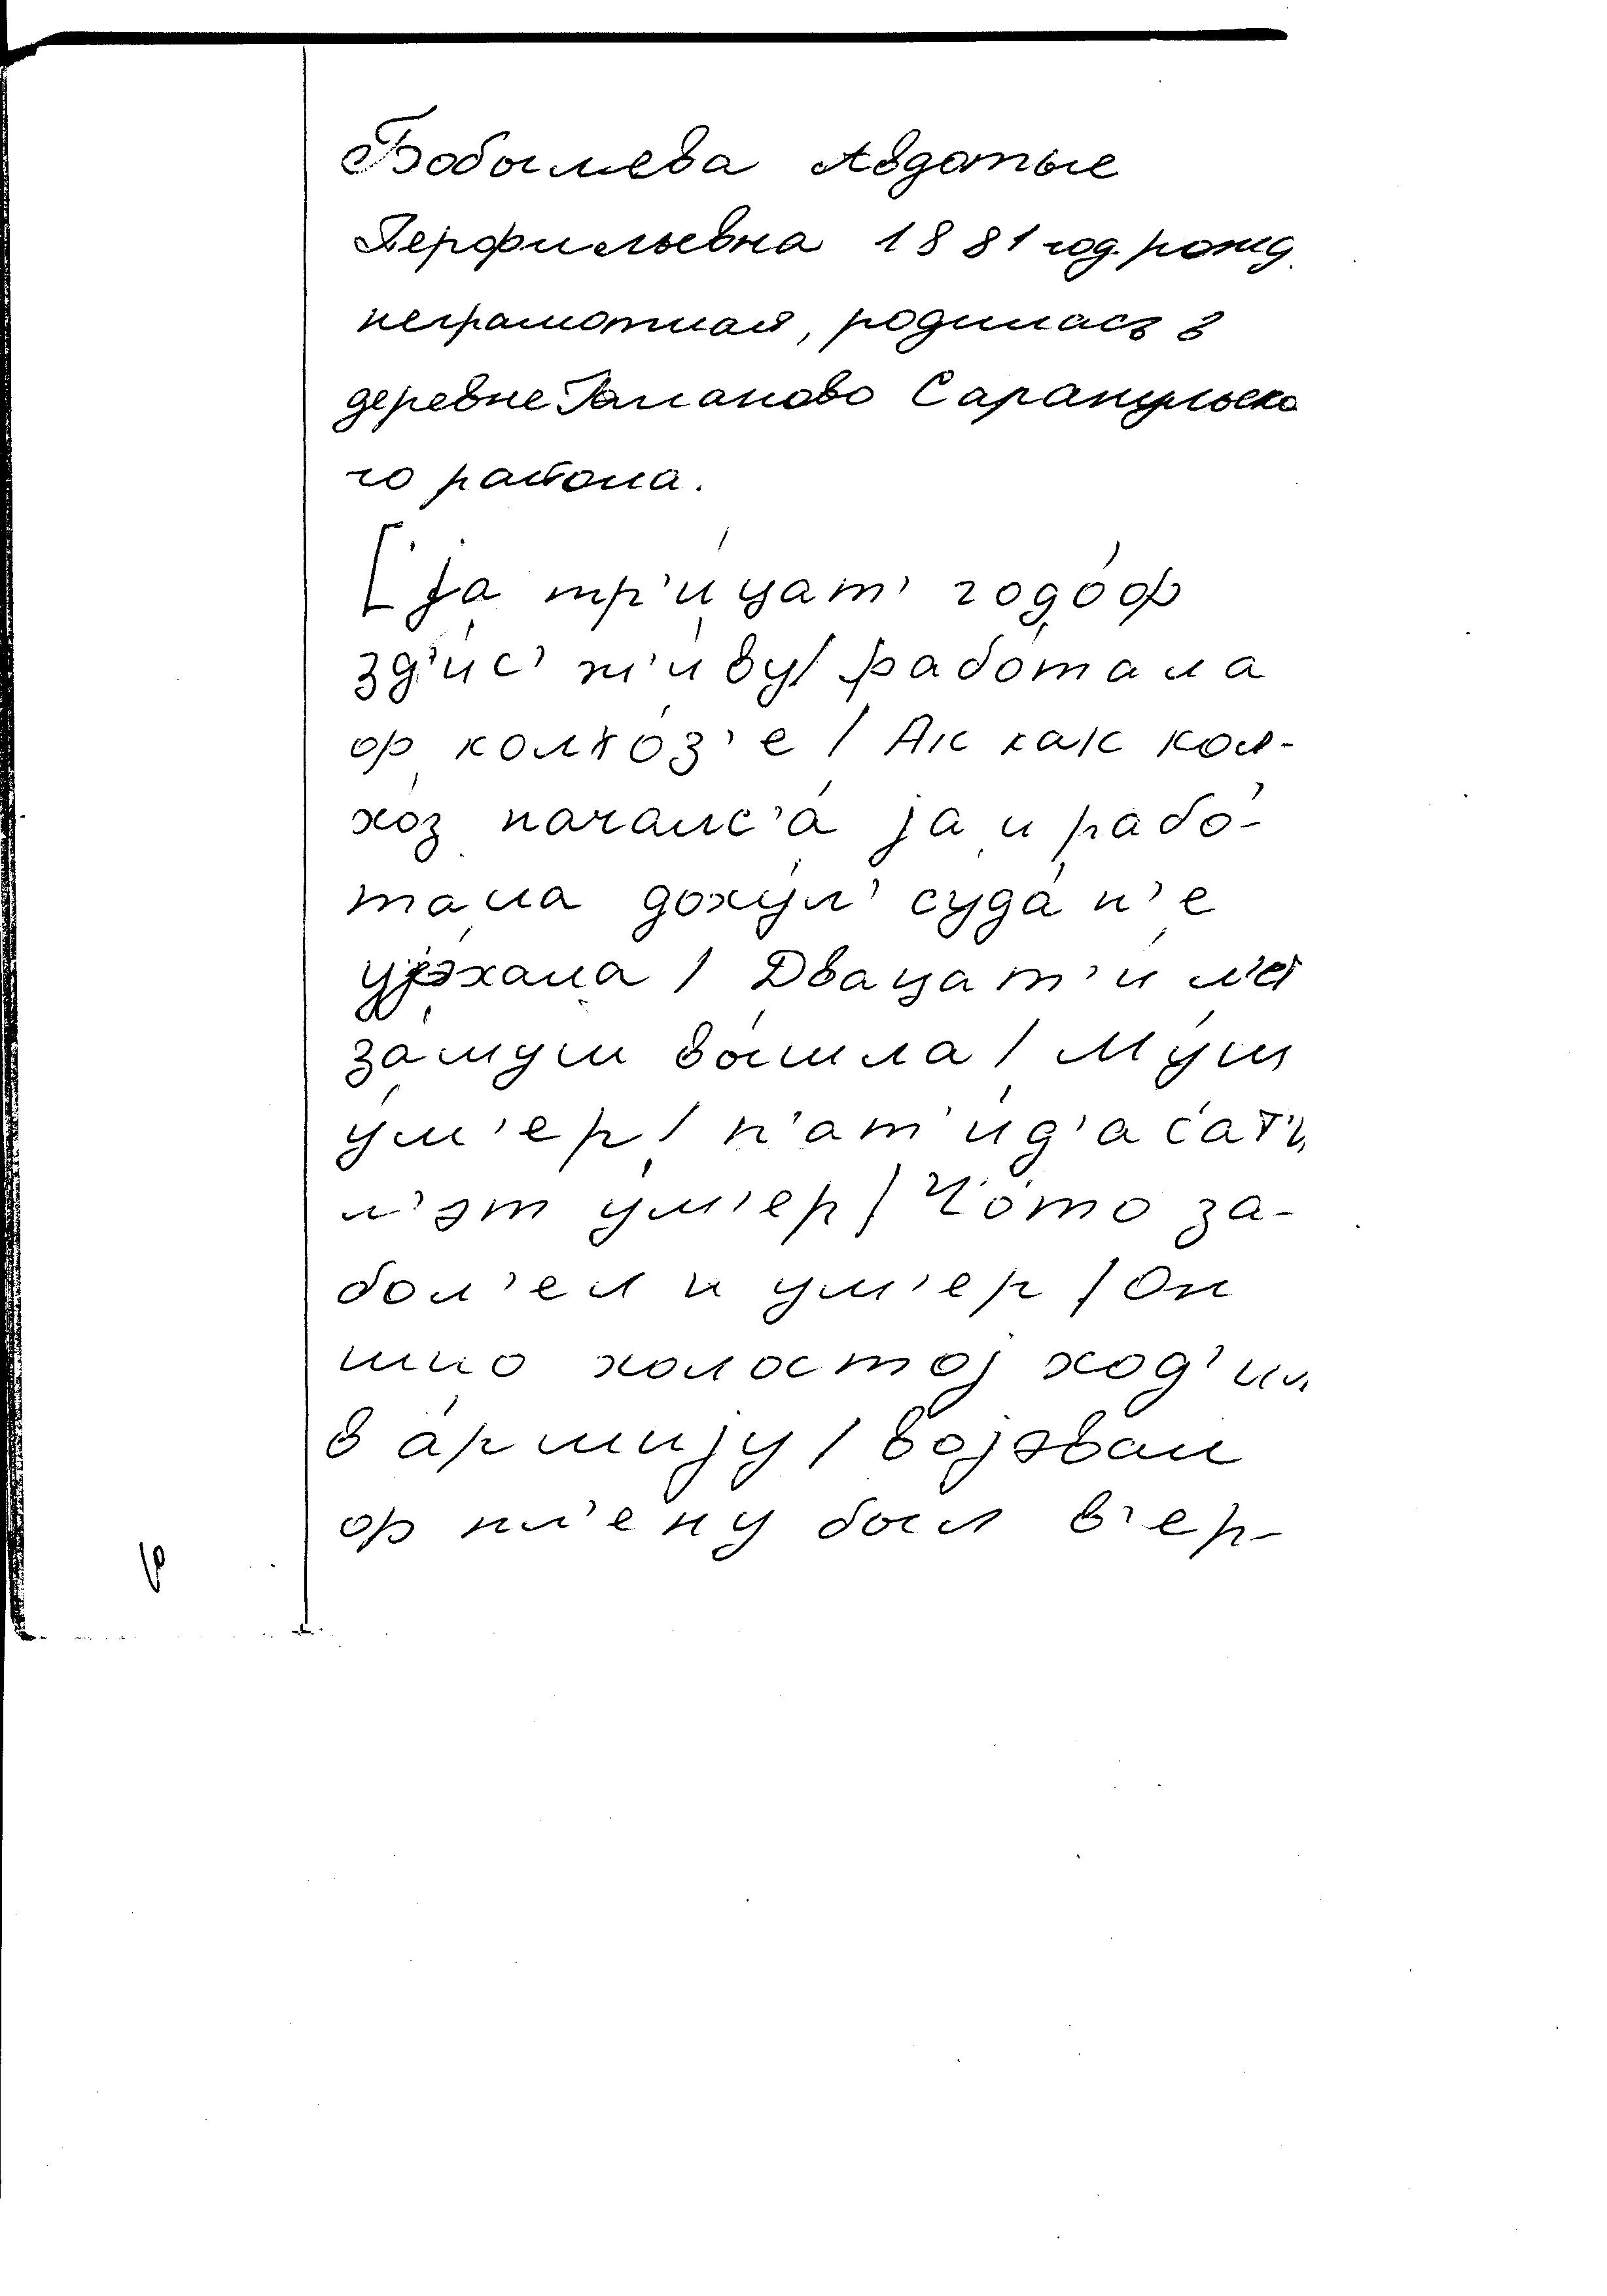 Бобылева Авдотье
Перфильевна 1881 год. рожд.
неграмотная, родилась в
деревне Галаново Сарапульско
го района.
[ја тр'и́цат' годо́ф
зд'ис' ж'иву́/ рабо́тала
ф колхо́з'е / Ак как кол-
хо́з началс'а́ ја и рабо́-
тала доху́л' суда́ н'е
ујэ́хала / Двацат'и́ л'ет
за́муш вы́шла / Му́ш
у́м'ер / п'ат'и́д'ас'ат'и
л'эт у́м'ер / Чо́то за-
бол'ел и ум'ер / Он
ишо холостој ход'ил
в а́рмију / војэвал
ф пл'ену был в'ер-